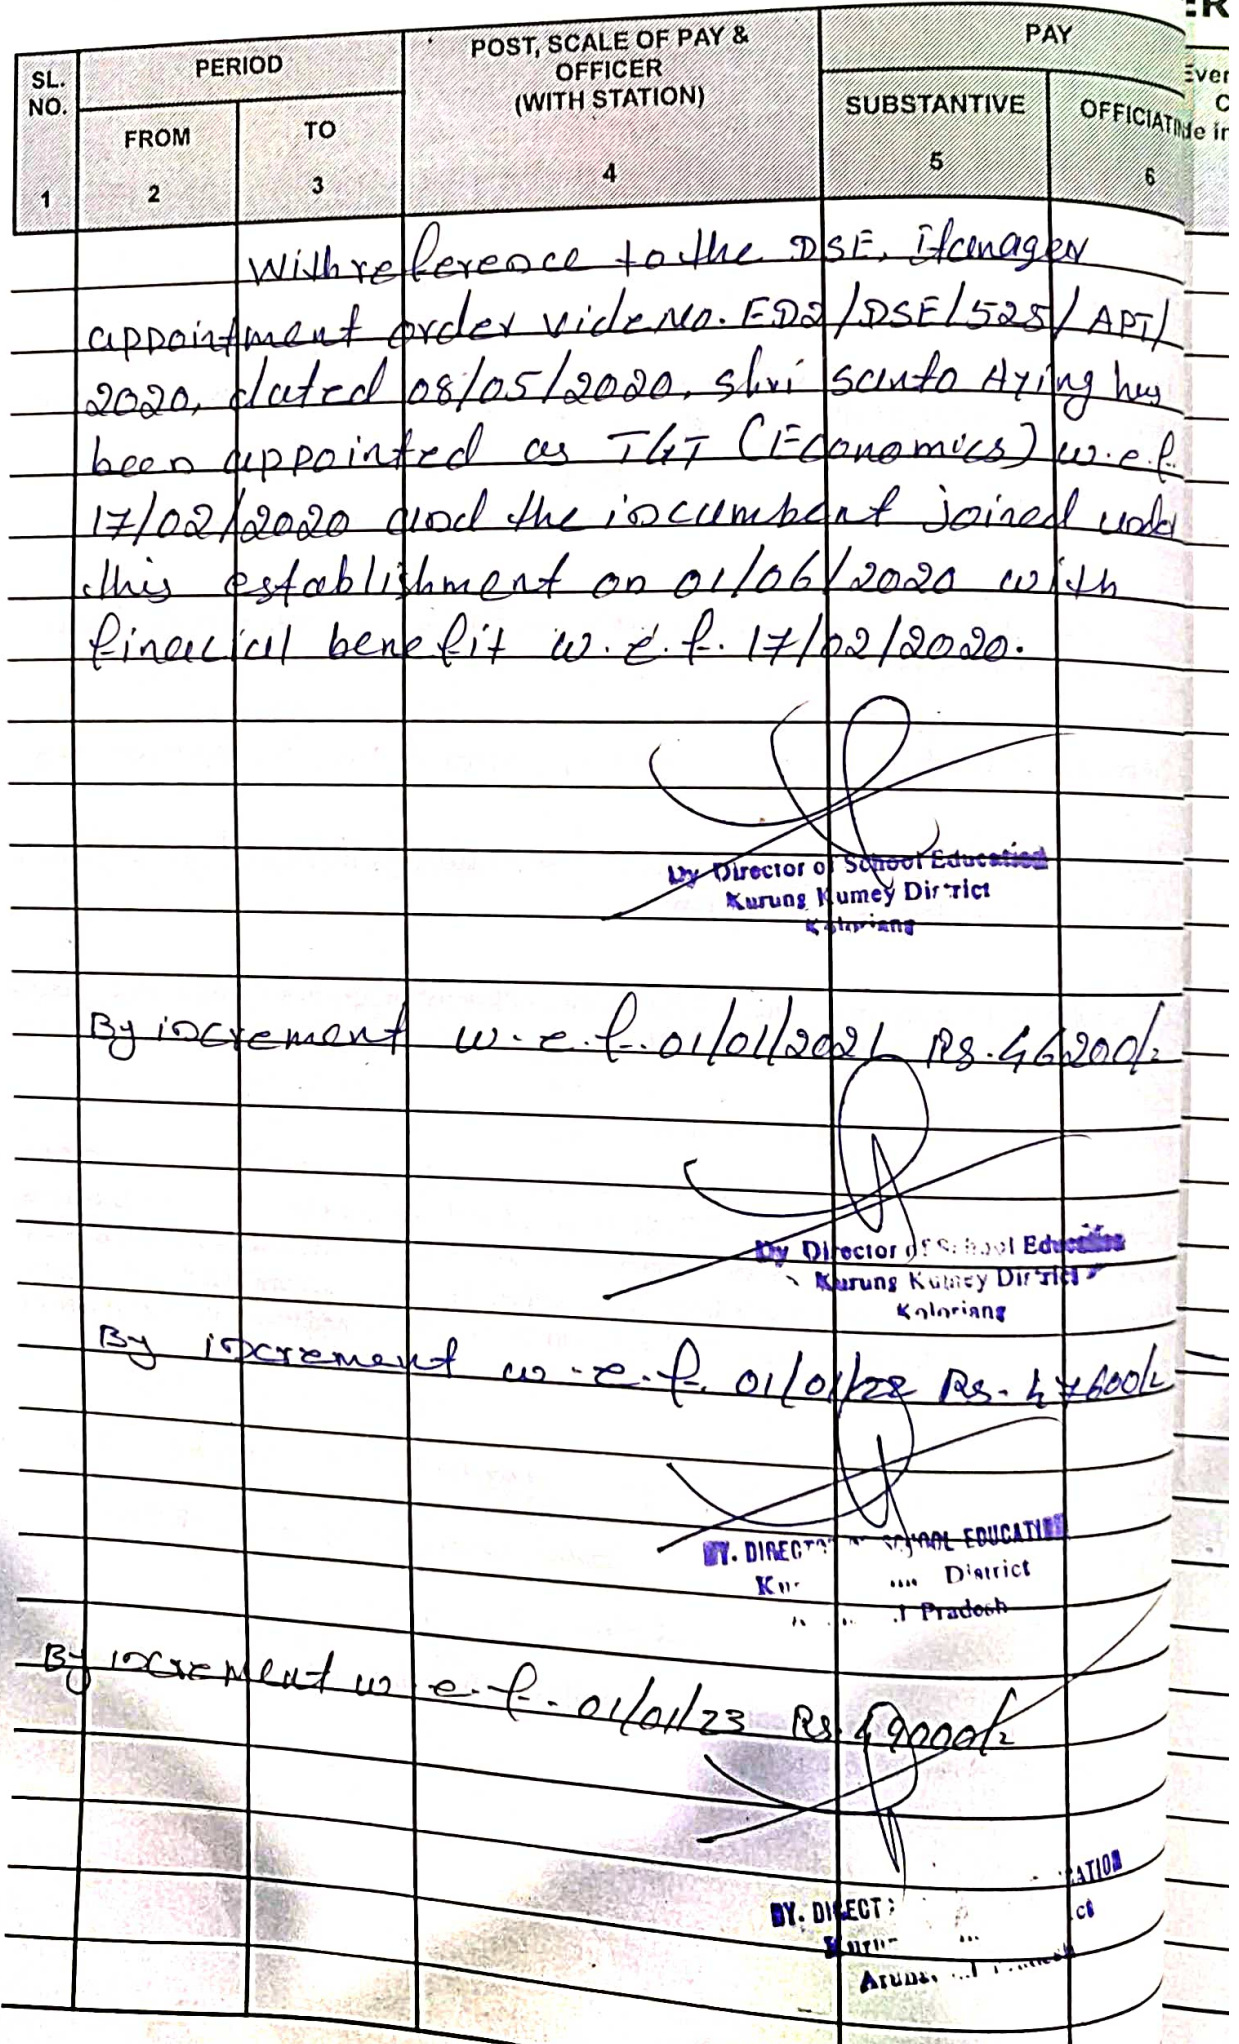 SL. NO.
PERIOD
POST, SCALE OF PAY & OFFICER (WITH STATION)
PAY
FROM
TO
SUBSTANTIVE
OFFICIATIN
1
2
3
4
5
6
With reference to the DSE, Itanager
appointment order vide No. ED2/DSE/525/APT/
2020, dated 08/05/2020, shri Santo Aying has
been appointed as TGT (Economics) w.e.f.
17/02/2020 and the incumbent joined under
this establishment on 01/06/2020 with
finacial benefit w.e.f. 17/02/2020.
Dy Director of School Education
Kurung Kumey District
Koloriang
By increment w.e.f. 01/01/2021 Rs. 46200/-
Dy Director of School Education
Kurung Kumey District
Koloriang
By increment w.e.f. 01/01/22 Rs. 47600/-
DY. DIRECTOR OF SCHOOL EDUCATION
District
Pradesh
By increment w.e.f. 01/01/23 Rs. 49000/-
DY. DIRECT